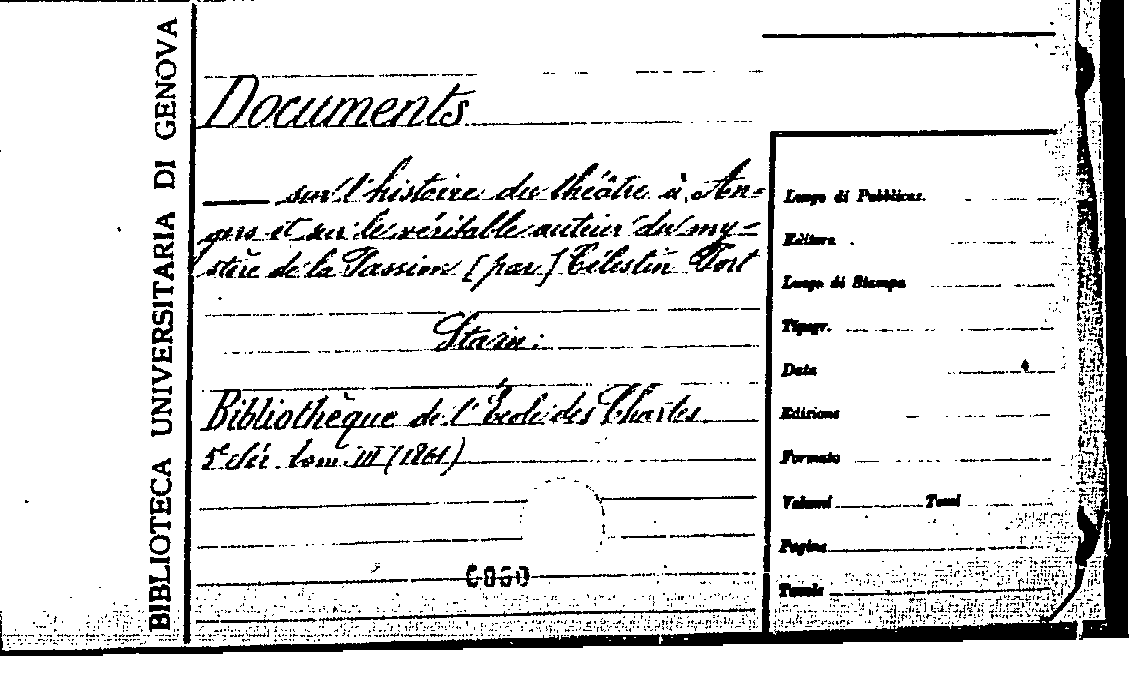 BIBLIOTECA UNIVERSITARIA DI GENOVA
Documents
sur l'histoire du théâtre à An=
gers et sur le véritable auteur du my=
stère de la Passion [par] Célestin Port
Sta in:
Bibliothèque de l'École des Chartes
5e sér. tom. III (1861)
Luogo di Pubblicaz.
Editore
Luogo di Stampa
Tipogr.
Data
Edizione
Formato
Volumi Tomi
Pagine
Tavole